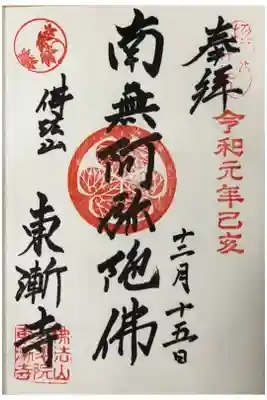 奉拝
令和元年己亥
十二月十五日
南無阿弥陀佛
佛法山
東漸寺
佛法山
東漸寺